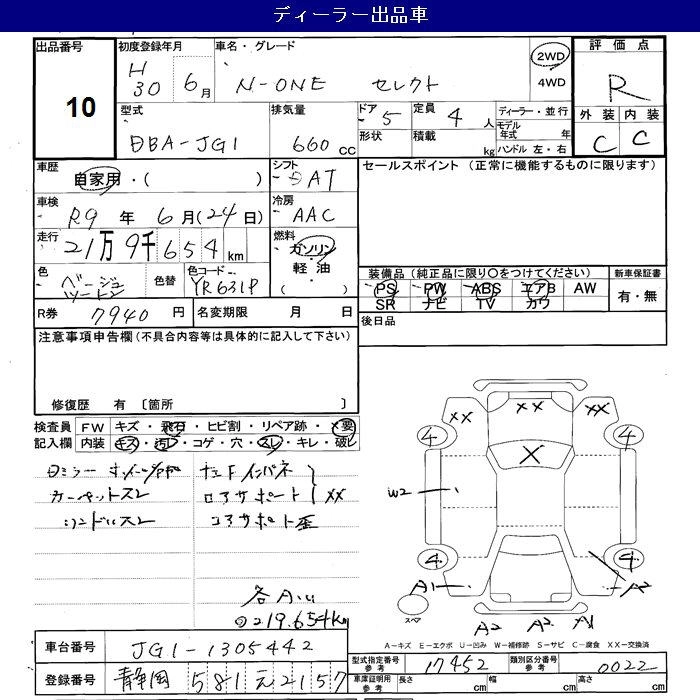 ディーラー出品車
出品番号 10
初度登録年月 H30 6月
車名・グレード N-ONE セレクト
2WD
4WD
評価点 R
型式 DBA-JG1
排気量 660cc
ドア 5
定員 4人
形状
積載 kg
ディーラー・並行
モデル年式 年
ハンドル 左・右
外装 C
内装 C
車歴 自家用・( )
シフト AT
セールスポイント (正常に機能するものに限ります)
車検 R9年6月(24日)
冷房 AAC
走行 21万9千654km
燃料 ガソリン・軽油・( )
色 ベージュツートン
色替
色コード YR631P
装備品 (純正品に限り○をつけてください)
新車保証書
PS PW ABS エアB AW
SR ナビ TV カワ
有・無
R券 7940円
名変期限 月 日
後日品
注意事項申告欄 (不具合内容等は具体的に記入して下さい)
修復歴 有 〔箇所 〕
検査員記入欄
FW キズ・飛石・ヒビ割・リペア跡・X要
内装 キズ・汚レ・コゲ・穴・スレ・キレ・破レ
カーペットスレ
コアサポート XX
コアサポート歪
219.654km
XX XX XX
4 4
X
W2
4 4
A1
スペア
A2 A2 A1
A−キズ E−エクボ U−凹み W−補修跡 S−サビ C−腐食 XX−交換済
車台番号 JG1-1305442
登録番号 静岡 581 え 2157
型式指定番号 参考 17452
類別区分番号 参考 0022
車庫証明用 参考
長さ cm
幅 cm
高さ cm